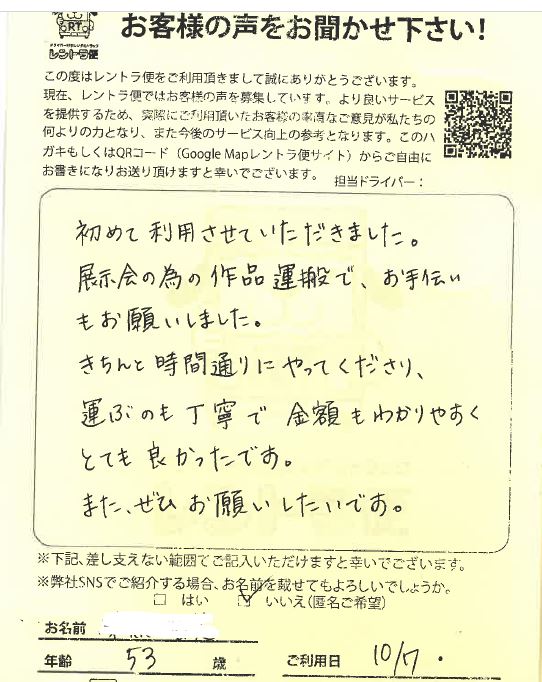 RT
ドライバー付きレンタルトラック
レントラ便
お客様の声をお聞かせ下さい!
この度はレントラ便をご利用頂きまして誠にありがとうございます。
現在、レントラ便ではお客様の声を募集しています。より良いサービス
を提供するため、実際にご利用頂いたお客様の率直なご意見が私たちの
何よりの力となり、また今後のサービス向上の参考となります。このハ
ガキもしくはQRコード（Google Mapレントラ便サイト）からご自由に
お書きになりお送り頂けますと幸いでございます。 担当ドライバー：
初めて利用させていただきました。
展示会の為の作品運搬で、お手伝い
もお願いしました。
きちんと時間通りにやってくださり、
運ぶのも丁寧で金額もわかりやすく
とても良かったです。
また、ぜひお願いしたいです。
※下記、差し支えない範囲でご記入いただけますと幸いでございます。
※弊社SNSでご紹介する場合、お名前を載せてもよろしいでしょうか。
□ はい ☑ いいえ(匿名ご希望)
お名前
年齢 53 歳 ご利用日 10/7.